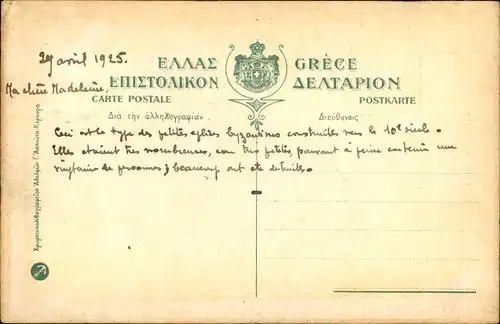 29 avril 1925.
Ma chère Madeleine,
ΕΛΛΑΣ GRÈCE
ΕΠΙΣΤΟΛΙΚΟΝ ΔΕΛΤΑΡΙΟΝ
CARTE POSTALE POSTKARTE
Διὰ τὴν ἀλληλογραφίαν Διεύθυνσις
Ceci est le type des petites églises byzantines construites vers le 10e siècle.
Elles étaient très nombreuses, car très petites, pouvant à peine contenir une
vingtaine de personnes ; beaucoup ont été détruites.